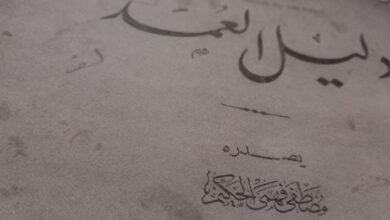 دليل العمد
يصدره
مصطفى فهمى الحكيم